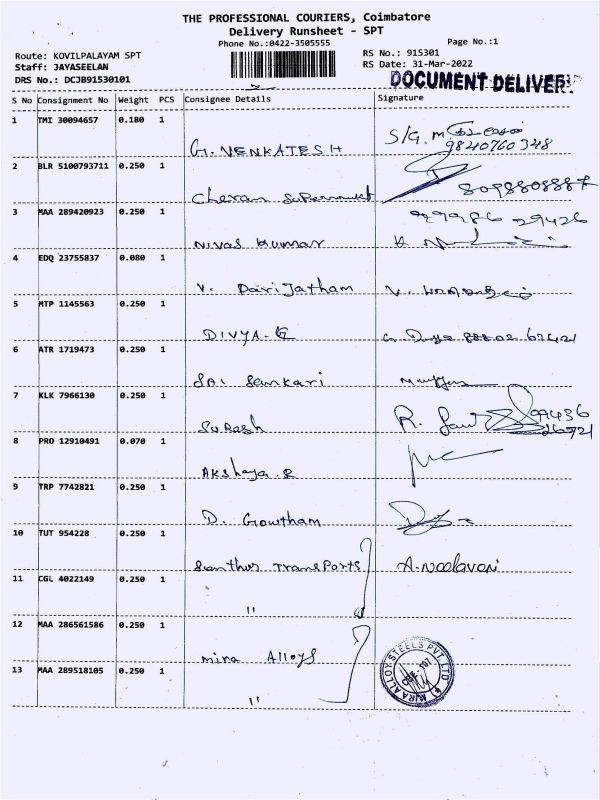 THE PROFESSIONAL COURIERS, Coimbatore
Delivery Runsheet - SPT
Phone No.:0422-3505555
Page No.:1
Route: KOVILPALAYAM SPT
RS No.: 915301
Staff: JAYASEELAN
RS Date: 31-Mar-2022
DRS No.: DCJB91530101
DOCUMENT DELIVER
S No Consignment No Weight PCS Consignee Details Signature
1 TMI 30094657 0.180 1
G. VENKATESH S/G. 9840760348
2 BLR 5100793711 0.250 1
Cheran 8098808887
3 MAA 289420923 0.250 1
99986 29426
Nivas Kumar
4 EDQ 23755837 0.080 1
V. Parijatham V.
5 MTP 1145563 0.250 1
DIVYA. G G Divya 88802 67421
6 ATR 1719473 0.250 1
Sai Sankari
7 KLK 7966130 0.250 1
Suresh R. 99436
26721
8 PRO 12910491 0.070 1
Akshaya. S
9 TRP 7742821 0.250 1
D. Gowtham
10 TUT 954228 0.250 1
Santhus Transports A. Neelaveni
11 CGL 4022149 0.250 1
"
12 MAA 286561586 0.250 1
Mira Alloys
MIRA ALLOY STEELS PVT. LTD
13 MAA 289518105 0.250 1
"